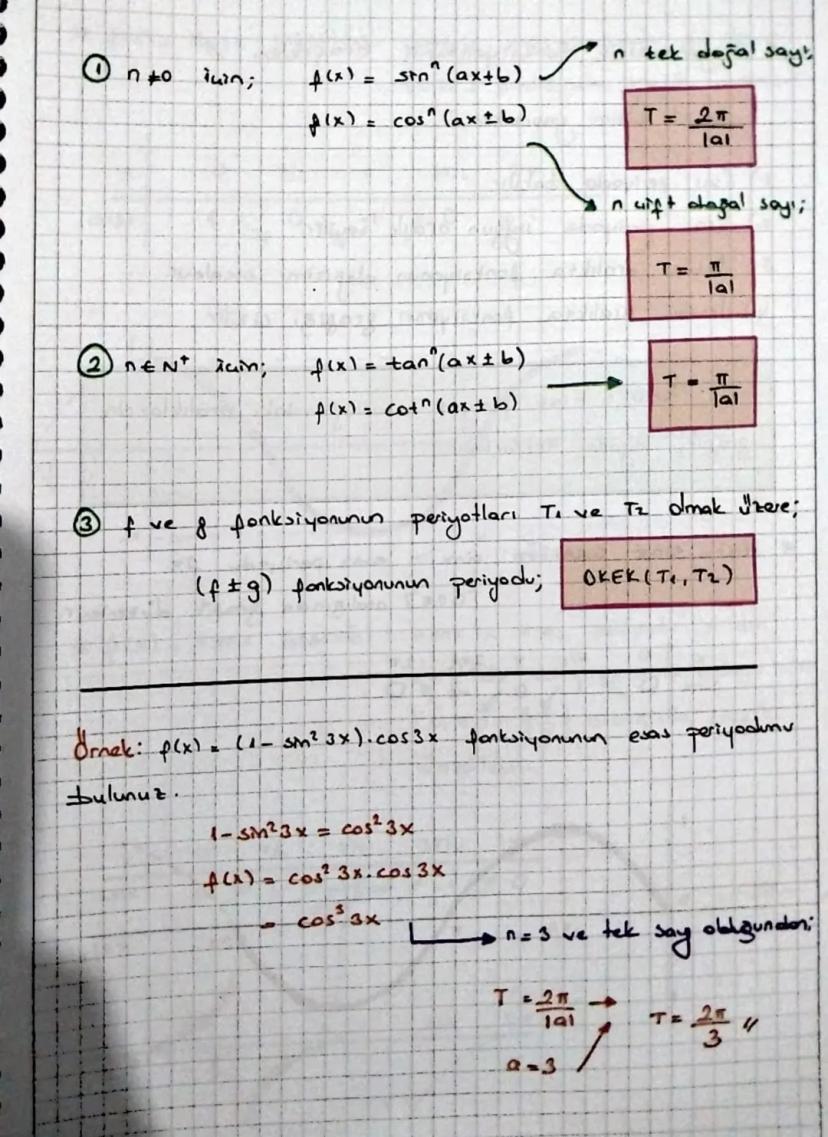 ① n≠0 için; f(x) = sinⁿ(ax±b) n tek doğal sayı;
f(x) = cosⁿ(ax±b) T = 2π/|a|
n çift doğal sayı;
T = π/|a|
② n∈N⁺ için; f(x) = tanⁿ(ax±b)
f(x) = cotⁿ(ax±b) T = π/|a|
③ f ve g fonksiyonunun periyotları T₁ ve T₂ olmak üzere;
(f±g) fonksiyonunun periyodu; OKEK(T₁,T₂)
Örnek: f(x) = (1-sin²3x).cos3x fonksiyonunun esas periyodunu
bulunuz.
1-sin²3x = cos²3x
f(x) = cos²3x.cos3x
= cos³3x
n=3 ve tek sayı olduğundan;
T = 2π/|a| T = 2π/3 //
a=3